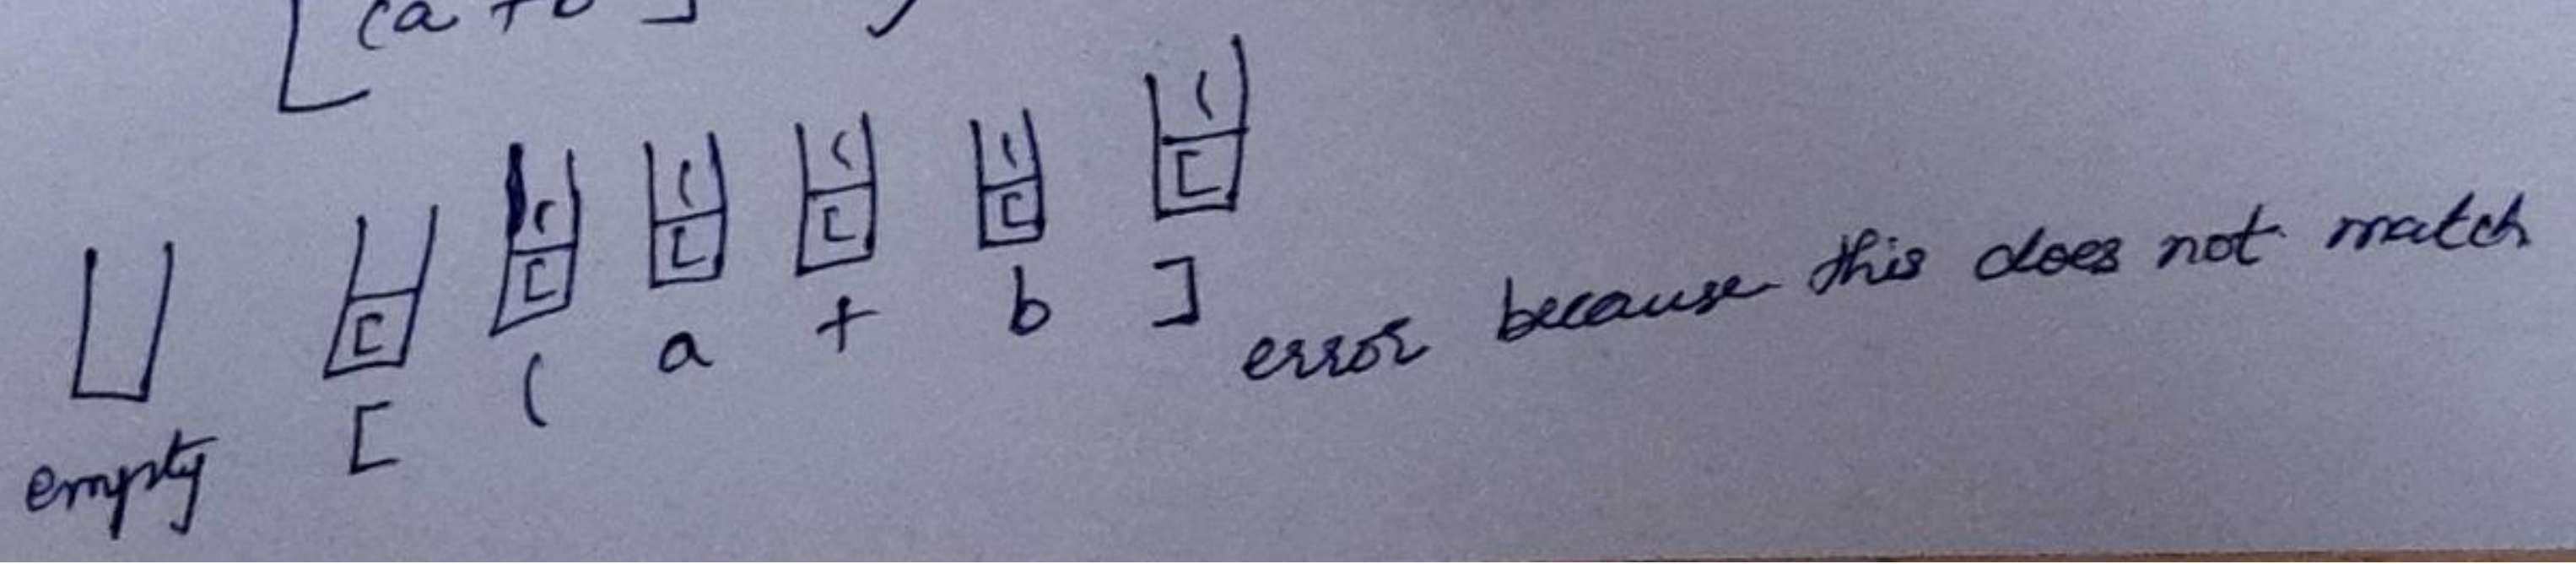 [ (a + b ]
( ( ( ( (
[ [ [ [ [ [
empty [ ( a + b ] error because this does not match